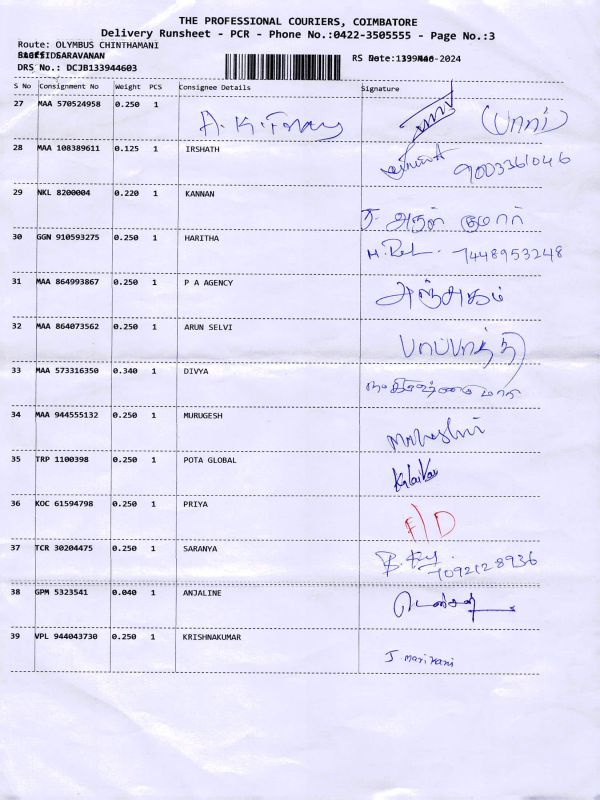 THE PROFESSIONAL COURIERS, COIMBATORE
Delivery Runsheet - PCR - Phone No.:0422-3505555 - Page No.:3
Route: OLYMBUS CHINTHAMANI
SARAVANAN
DRS No.: DCJB133944603
S No Consignment No Weight PCS Consignee Details Signature
27 MAA 570524958 0.250 1
28 MAA 108389611 0.125 1 IRSHATH 9003361046
29 NKL 8200004 0.220 1 KANNAN த. அருள் குமார்
30 GGN 910593275 0.250 1 HARITHA 7448953248
31 MAA 864993867 0.250 1 P A AGENCY
32 MAA 864073562 0.250 1 ARUN SELVI பாப்பாத்தி
33 MAA 573316350 0.340 1 DIVYA
34 MAA 944555132 0.250 1 MURUGESH
35 TRP 1100398 0.250 1 POTA GLOBAL
36 KOC 61594798 0.250 1 PRIYA F/D
37 TCR 30204475 0.250 1 SARANYA 7092128936
38 GPM 5323541 0.040 1 ANJALINE
39 VPL 944043730 0.250 1 KRISHNAKUMAR